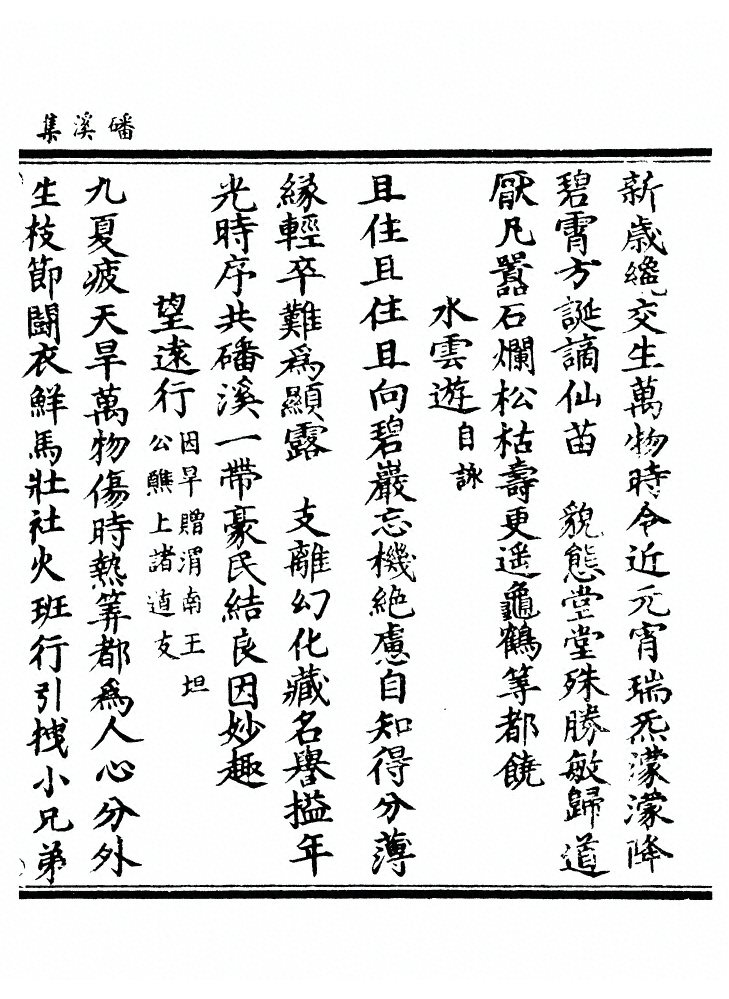 磻溪集
新歳纔交生萬物時令近元宵瑞炁濛濛降
碧霄方誕謫仙苗　貌態堂堂殊勝敏歸道
厭凡囂石爛松枯壽更遥龜鶴等都饒
水雲遊自詠
且住且住且向碧巖忘機絶慮自知得分薄
緣輕卒難爲顯露　支離幻化藏名譽搤年
光時序共磻溪一帶豪民結良因妙趣
望遠行因旱贈渭南王坦
公鱖上諸道友
九夏疲天旱萬物傷時熱筭都爲人心分外
生枝節鬪衣鮮馬壯社火班行引拽小兄弟